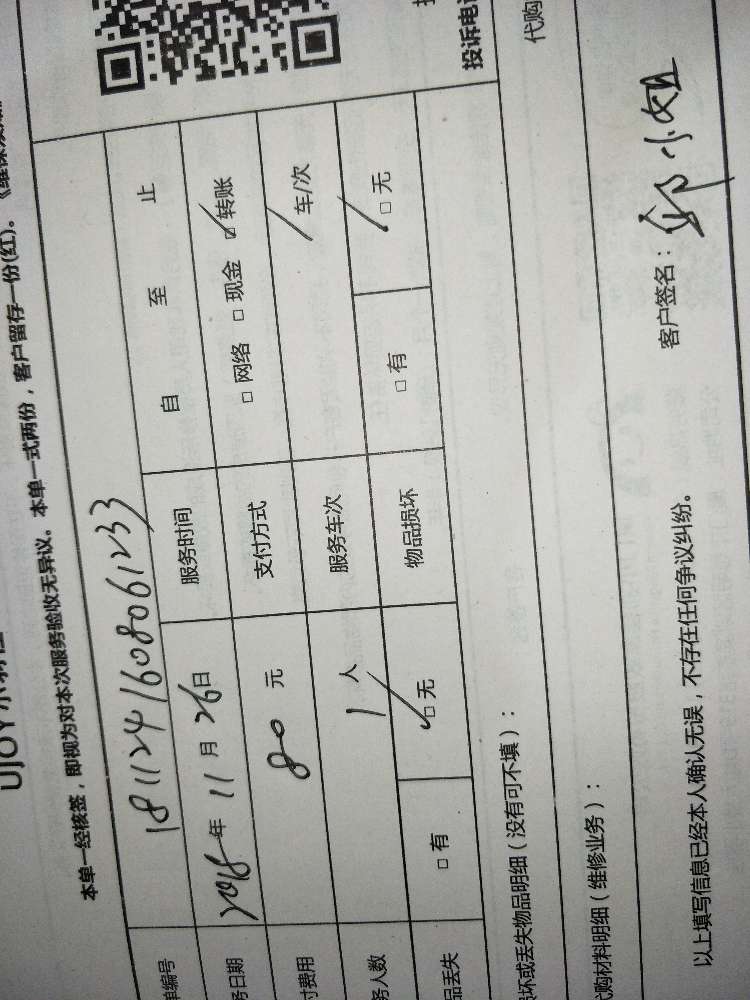 UJOY
本单一经核签，即视为对本次服务验收无异议。本单一式两份，客户留存一份(红)。
单编号 1811241608061233
务日期 2018年11月26日 服务时间 自 至 止
付费用 80元 支付方式 □网络 □现金 ☑转账
务人数 1人 服务车次 / 车/次
品丢失 □有 ☑无 物品损坏 □有 ☑无
投诉电
损坏或丢失物品明细（没有可不填）：
代购
代购材料明细（维修业务）：
以上填写信息已经本人确认无误，不存在任何争议纠纷。 客户签名： 小姐